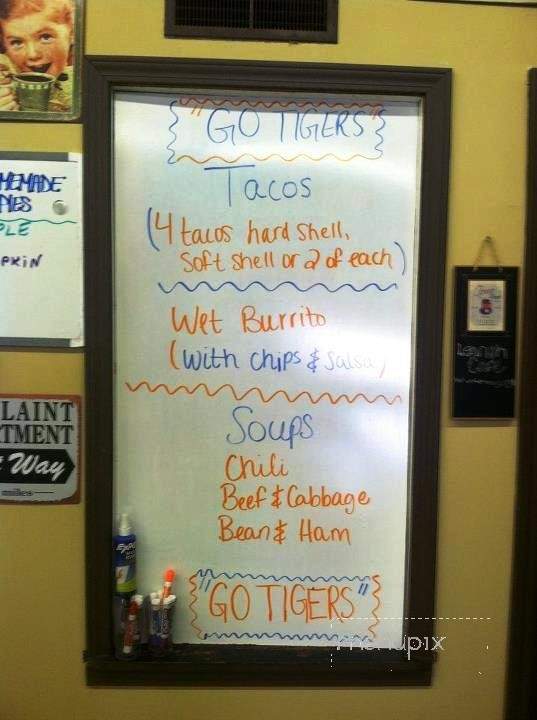 "GO TIGERS"
Tacos
(4 tacos hard shell,
soft shell or 2 of each)
Wet Burrito
(with chips & salsa)
Soups
Chili
Beef & Cabbage
Bean & Ham
"GO TIGERS"
MEMADE
PIES
PLE
PKIN
LAINT
TMENT
Way
miles
EXPO
menupix